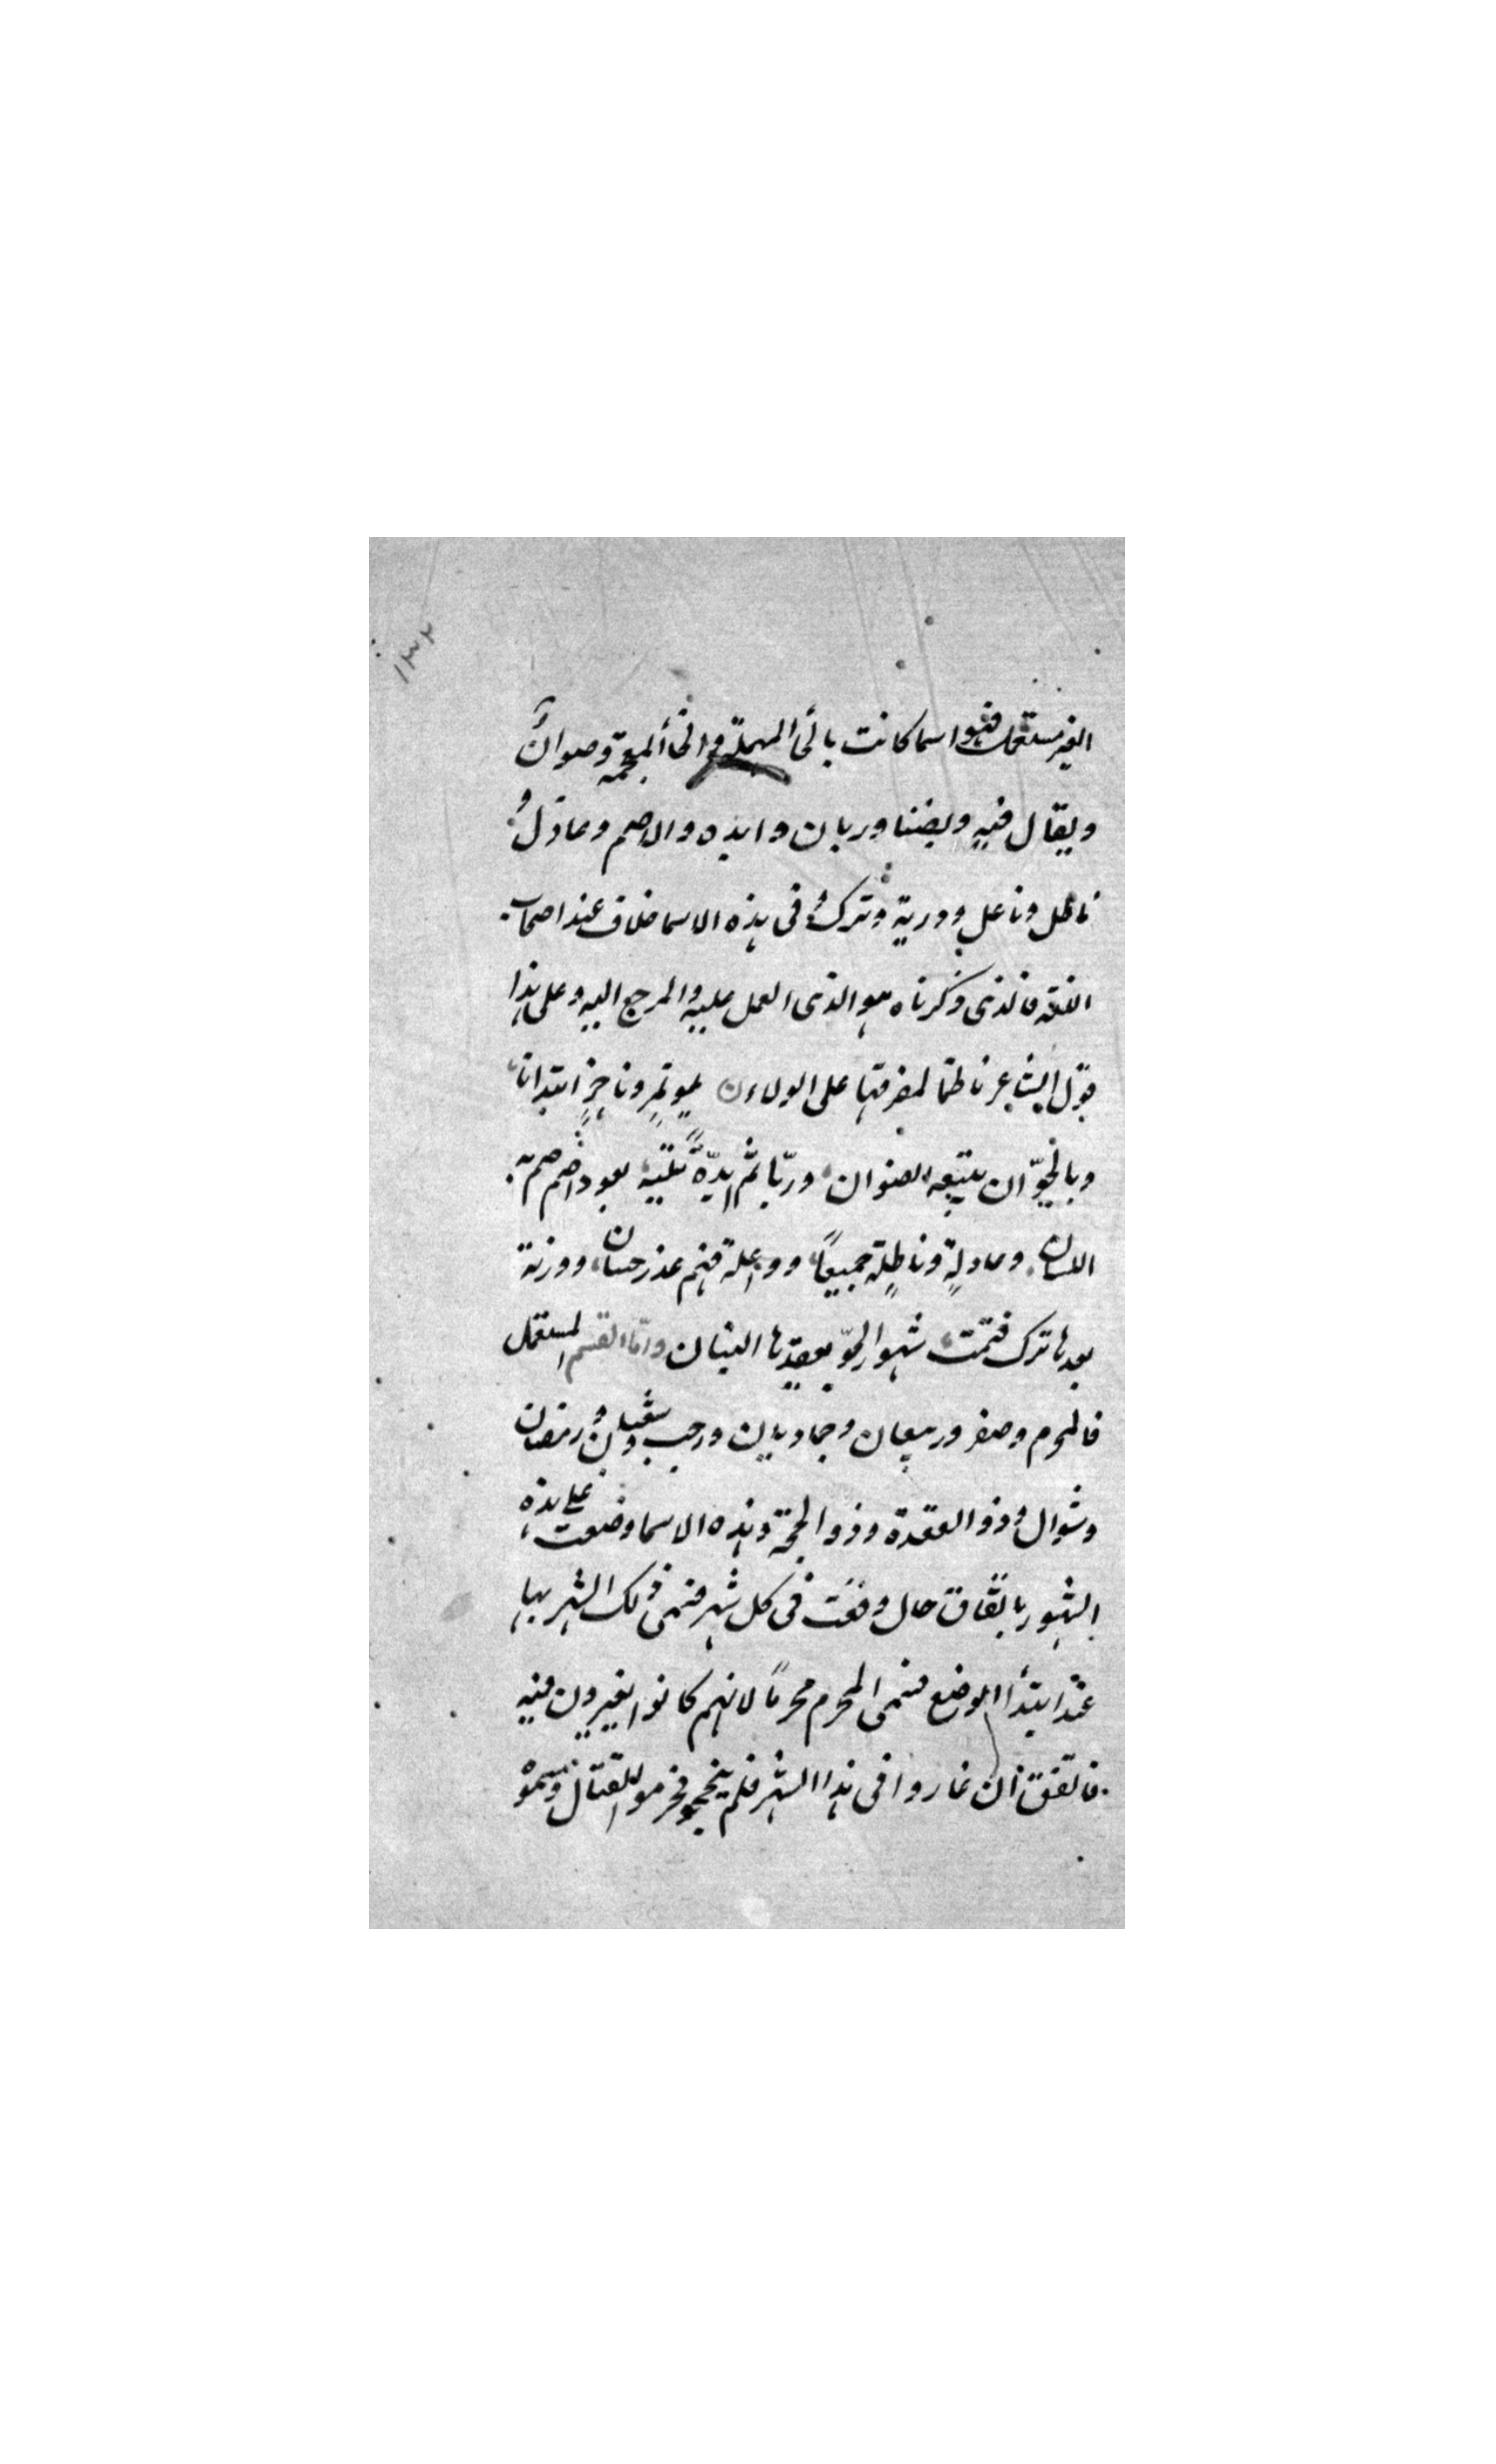 ١٣٢
الغير مستعمل فهو اسما كانت بالحأ المهملة والخأ المعجمة وصوان
ويقال فيه وبصنا وربان وايده والاصم وعادل
ناطل وناعل وورية وترك في هذه الاسما خلاف عند اصحاب
اللغة فالذي ذكرناه هو الذي العمل عليه والمرجع اليه وعلى هذا
قول الشاعر ناظما لمعرفتها على الولاء بموتمر وناجز ابتدانا
وبالخوّان يتبعه الصوان وربّا ثم ايدّة تليه يعود اصم صم به
اللسان وعادلة وناطلة جميعاً وواعلة فهم غذر حسان وورنة
بعدها ترك فتمت شهور الحوّ يعقدها البنان وامّا القسم المستعمل
فالمحرم وصفر وربيعان وجماديان ورجب وشعبان ورمضان
وشوال وذو القعدة وذو الحجة وهذه الاسما وضعت على هذه
الشهور باتفاق حال وقعت في كل شهر فسمى ذلك الشهر بها
عند ابتدأ الوضع فسمى المحرم محرماً لانهم كانوا يغيرون فيه
فاتفق ان غاروا في هذا الشهر فلم ينجحو فحرمو القتال وسموْ